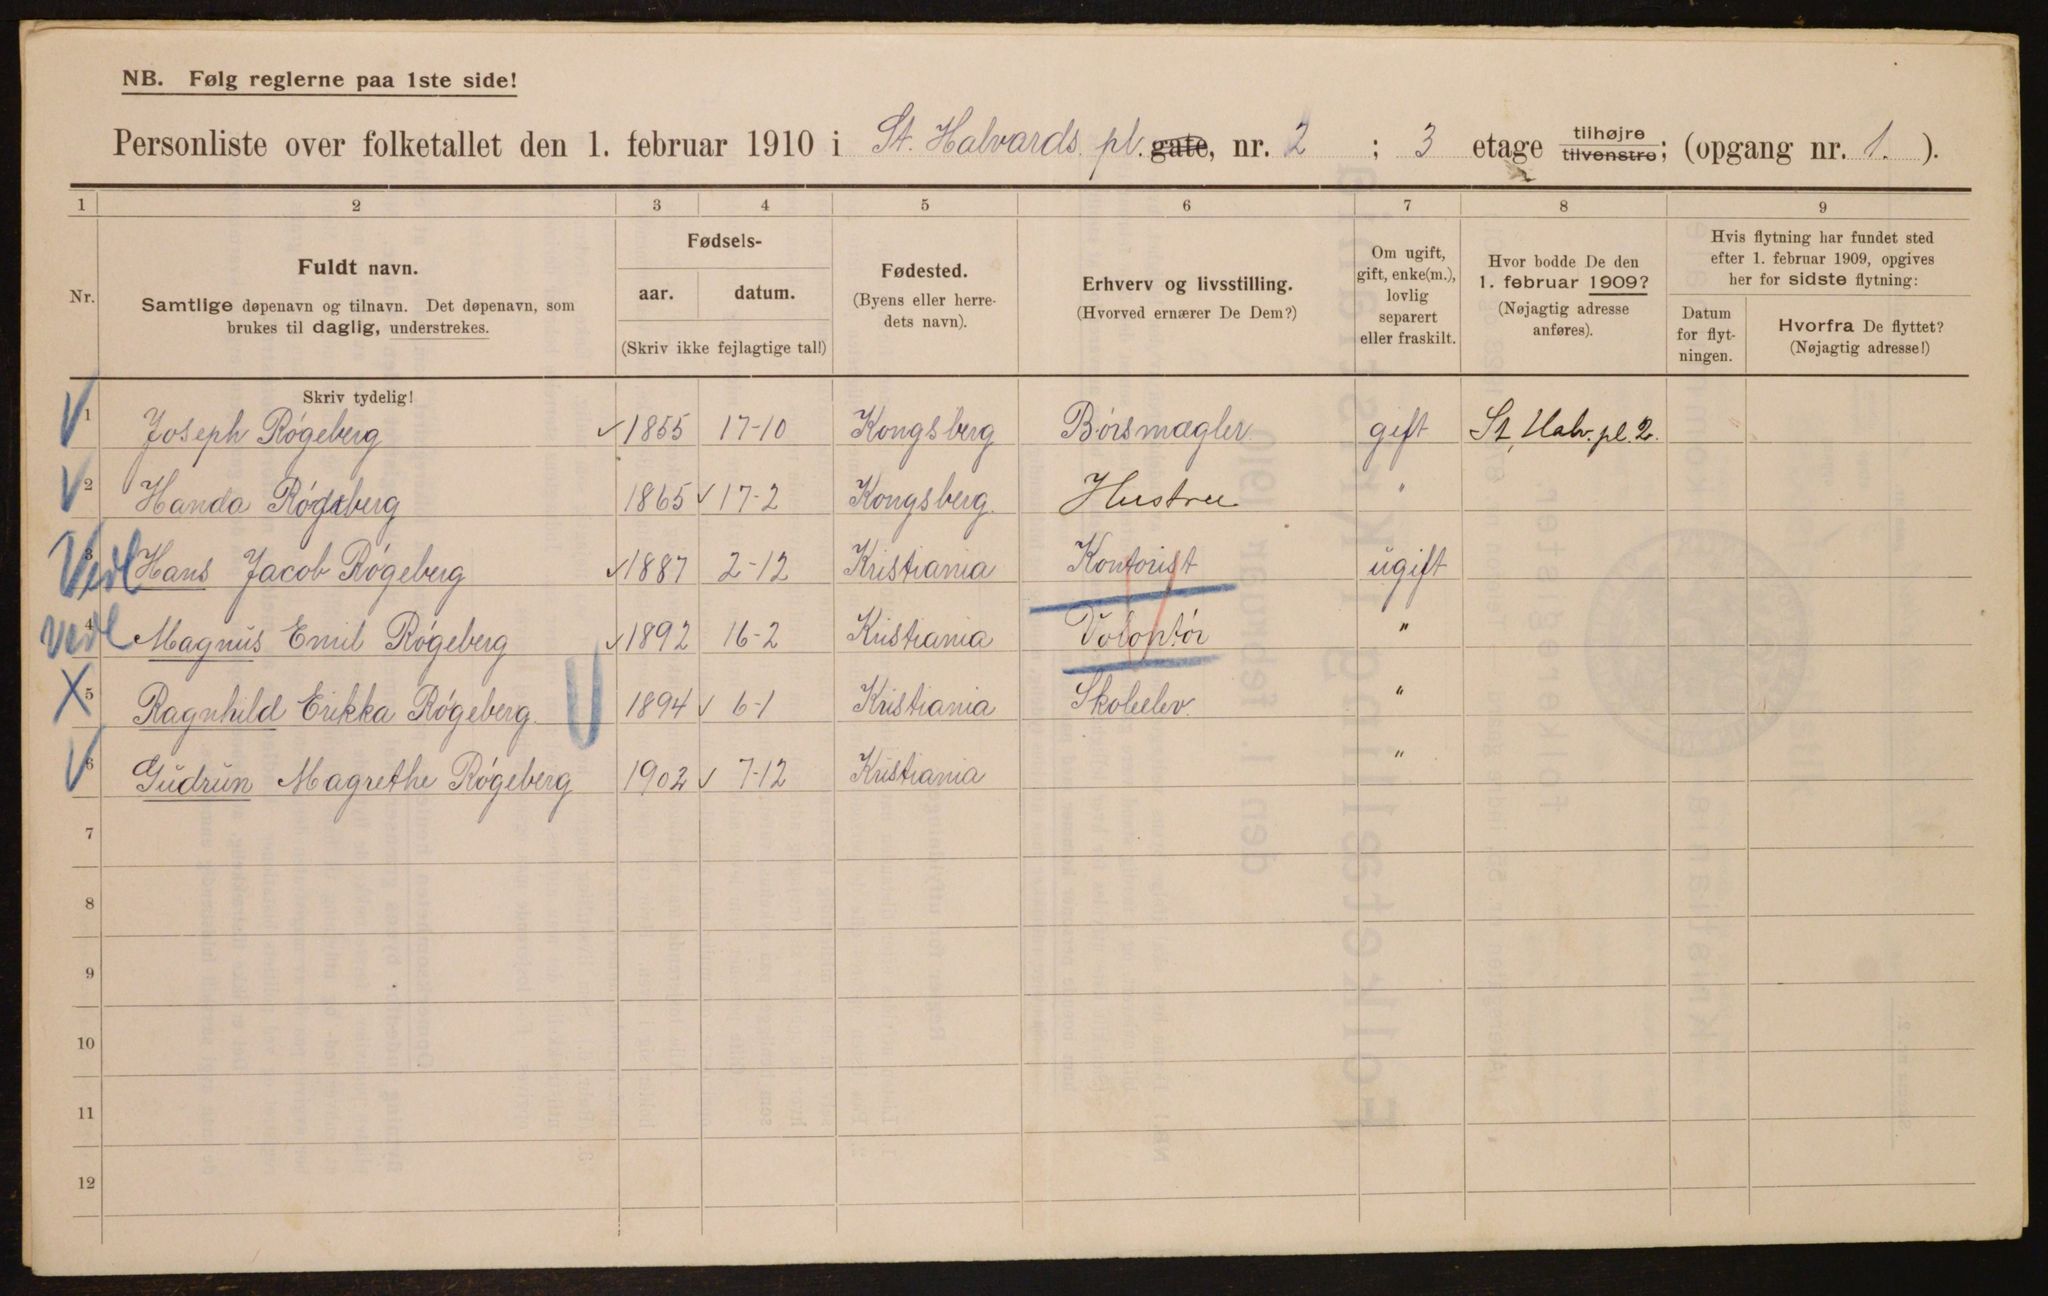 NB. Følg reglerne paa 1ste side!
Personliste over folketallet den 1. februar 1910 i St. Halvards pl. gate, nr. 2 ; 3 etage tilhøjre tilvenstre; (opgang nr. 1. ).
1 2 3 4 5 6 7 8 9
Nr.
Fuldt navn.
Samtlige døpenavn og tilnavn. Det døpenavn, som
brukes til daglig, understrekes.
Fødsels-
aar. datum.
(Skriv ikke fejlagtige tal!)
Fødested.
(Byens eller herre-
dets navn).
Erhverv og livsstilling.
(Hvorved ernærer De Dem?)
Om ugift,
gift, enke(m.),
lovlig
separert
eller fraskilt.
Hvor bodde De den
1. februar 1909?
(Nøjagtig adresse
anføres).
Hvis flytning har fundet sted
efter 1. februar 1909, opgives
her for sidste flytning:
Datum
for flyt-
ningen.
Hvorfra De flyttet?
(Nøjagtig adresse!)
Skriv tydelig!
1 Joseph Røgeberg 1855 17-10 Kongsberg Børsmægler. gift St. Halv. pl. 2.
2 Handa Røgeberg 1865 17-2 Kongsberg. Hustru "
3 Hans Jacob Røgeberg 1887 2-12 Kristiania Kontorist ugift
4 Magnus Emil Røgeberg 1892 16-2 Kristiania Volontør "
5 Ragnhild Erikka Røgeberg. 1894 6-1 Kristiania Skoleelev. "
6 Gudrun Magrethe Røgeberg 1902 7-12 Kristiania "
7
8
9
10
11
12